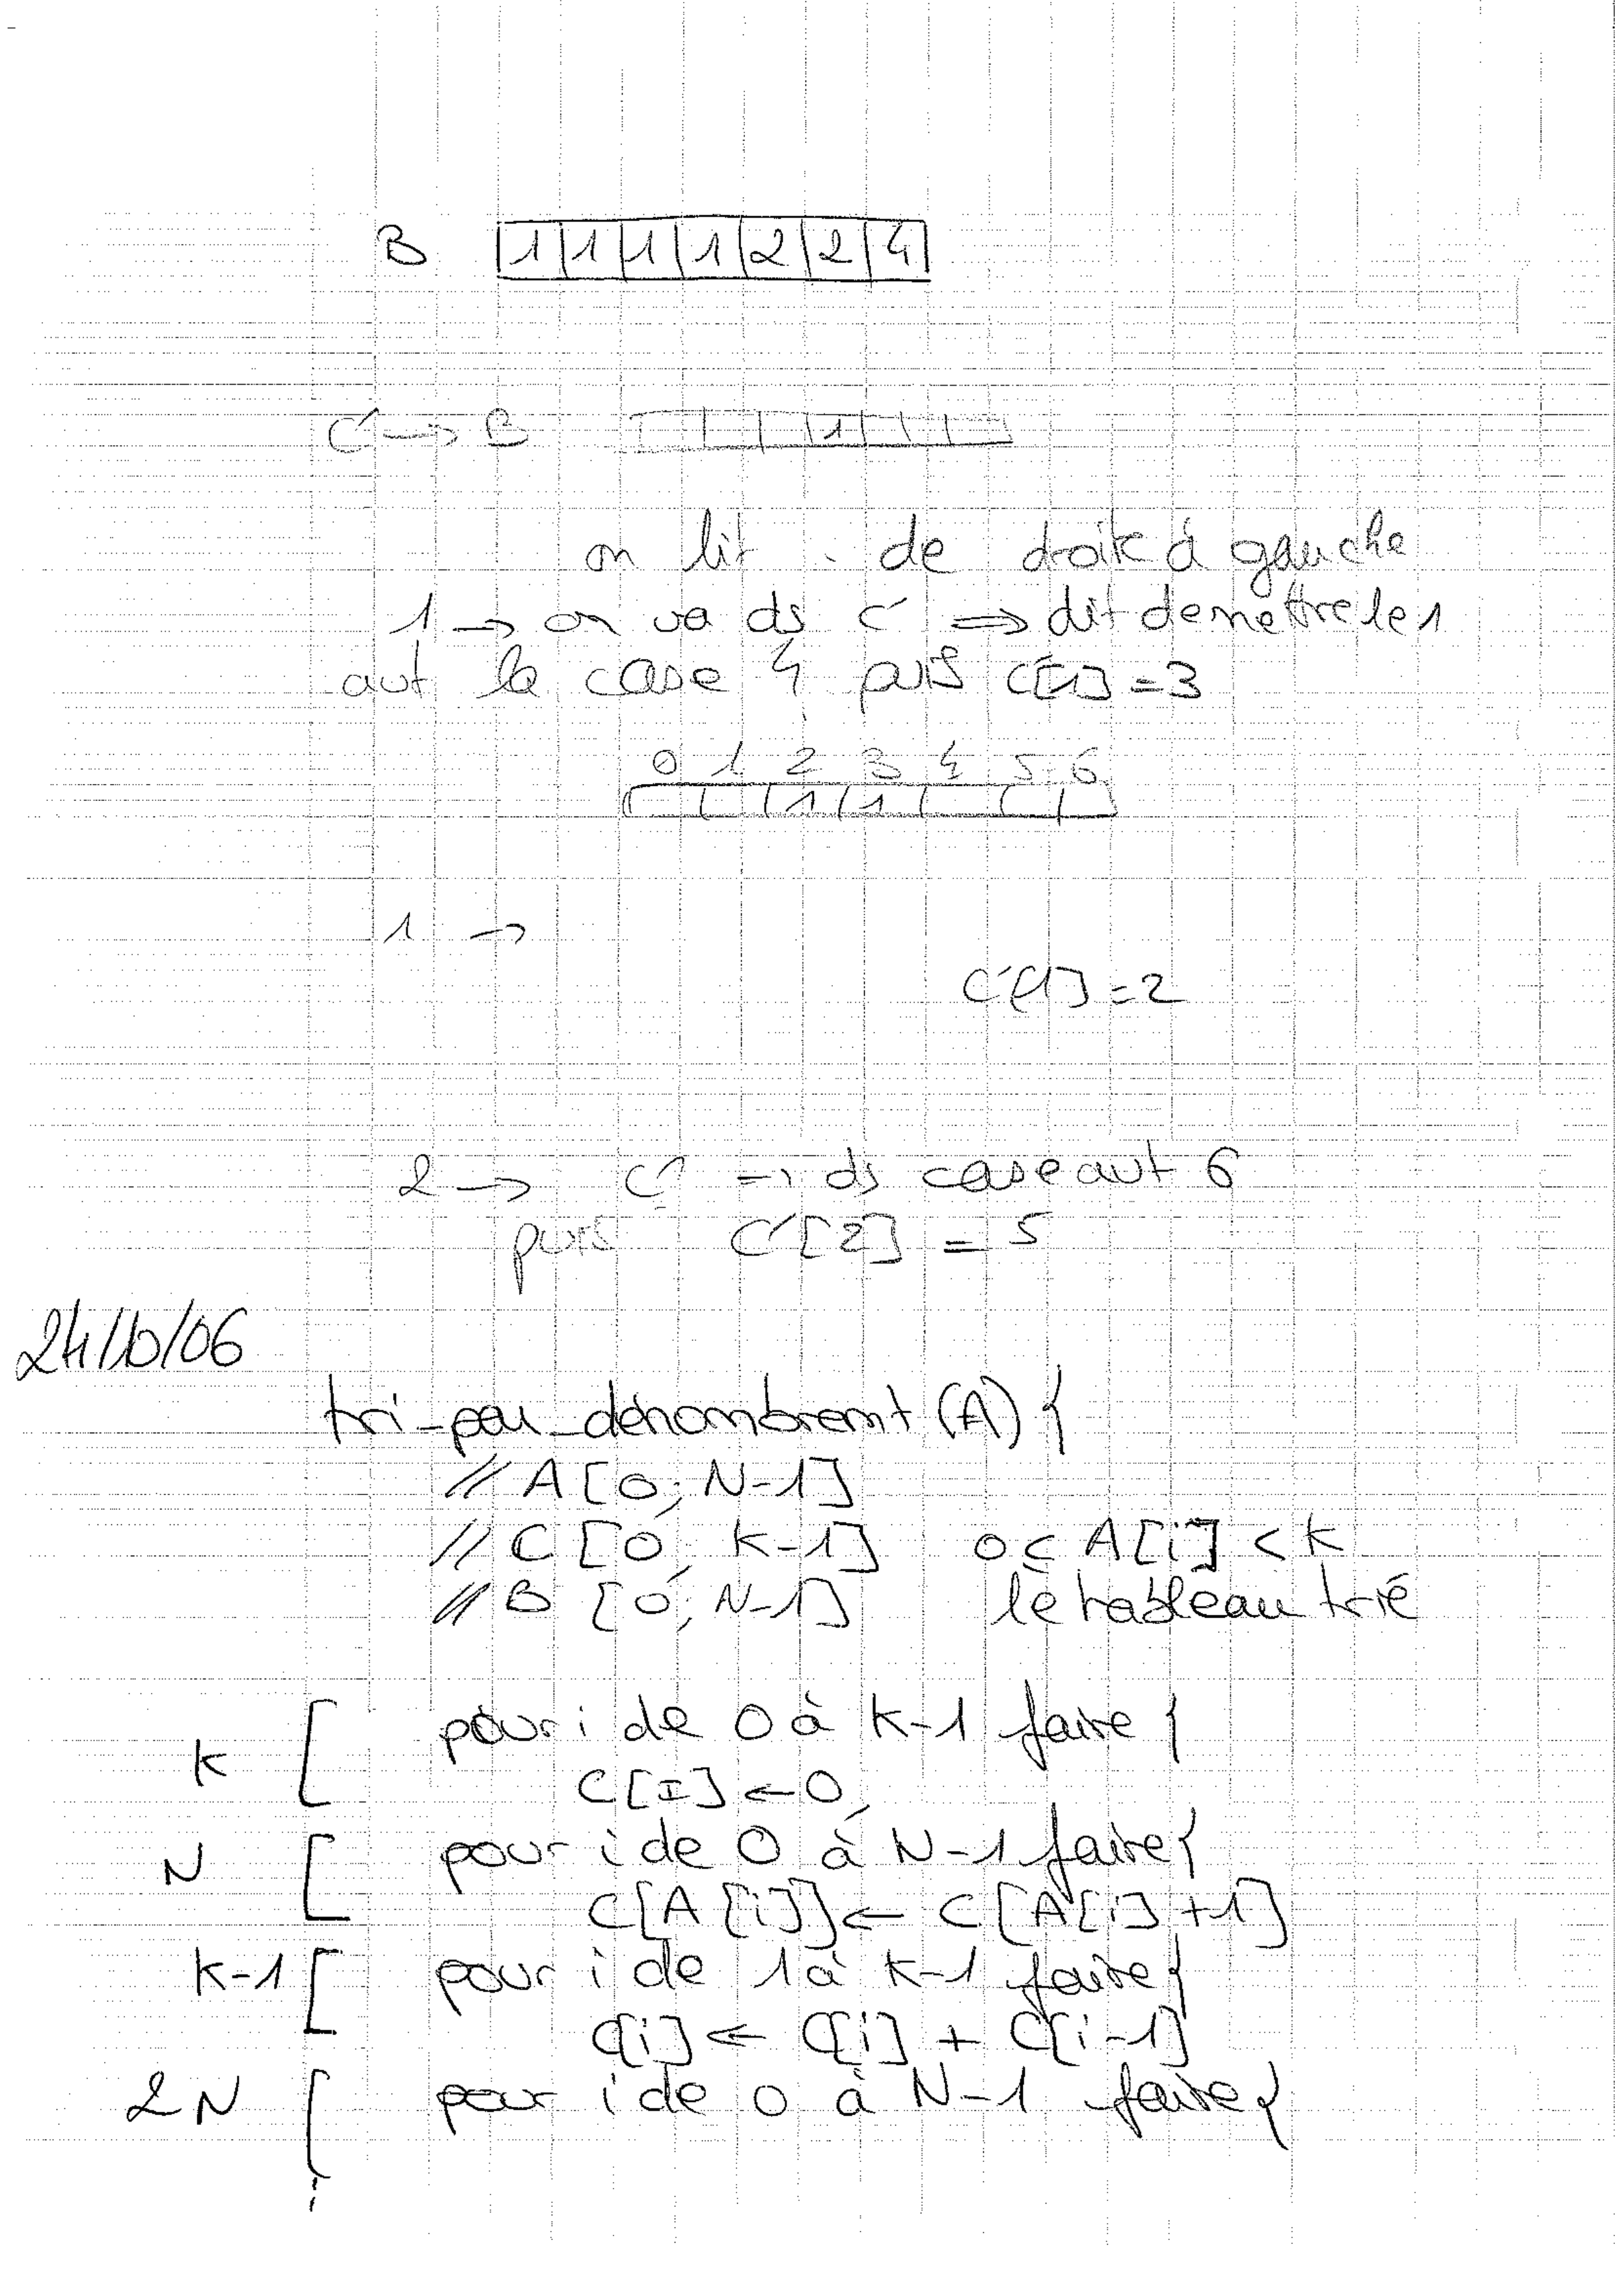 B |1|1|1|1|2|2|4|
C' → B 1
on lit de droite à gauche
1 → on va ds C' ⇒ dit de mettre le 1
avt la case 4 puis C'[1] = 3
0 1 2 3 4 5 6
1 1
1 →
C'[1] = 2
2 → C' → ds case avt 6
puis C'[2] = 5
24/10/06
tri-par_denombremt (A) {
// A [0; N-1]
// C [0; K-1] 0 ≤ A[i] < K
// B [0; N-1] le tableau trié
K [ pour i de 0 à K-1 faire {
C[I] ← 0
N [ pour i de 0 à N-1 faire {
C[A[i]] ← C[A[i]+1]
K-1 [ pour i de 1 à K-1 faire {
C[i] ← C[i] + C[i-1]
2N [ pour i de 0 à N-1 faire {